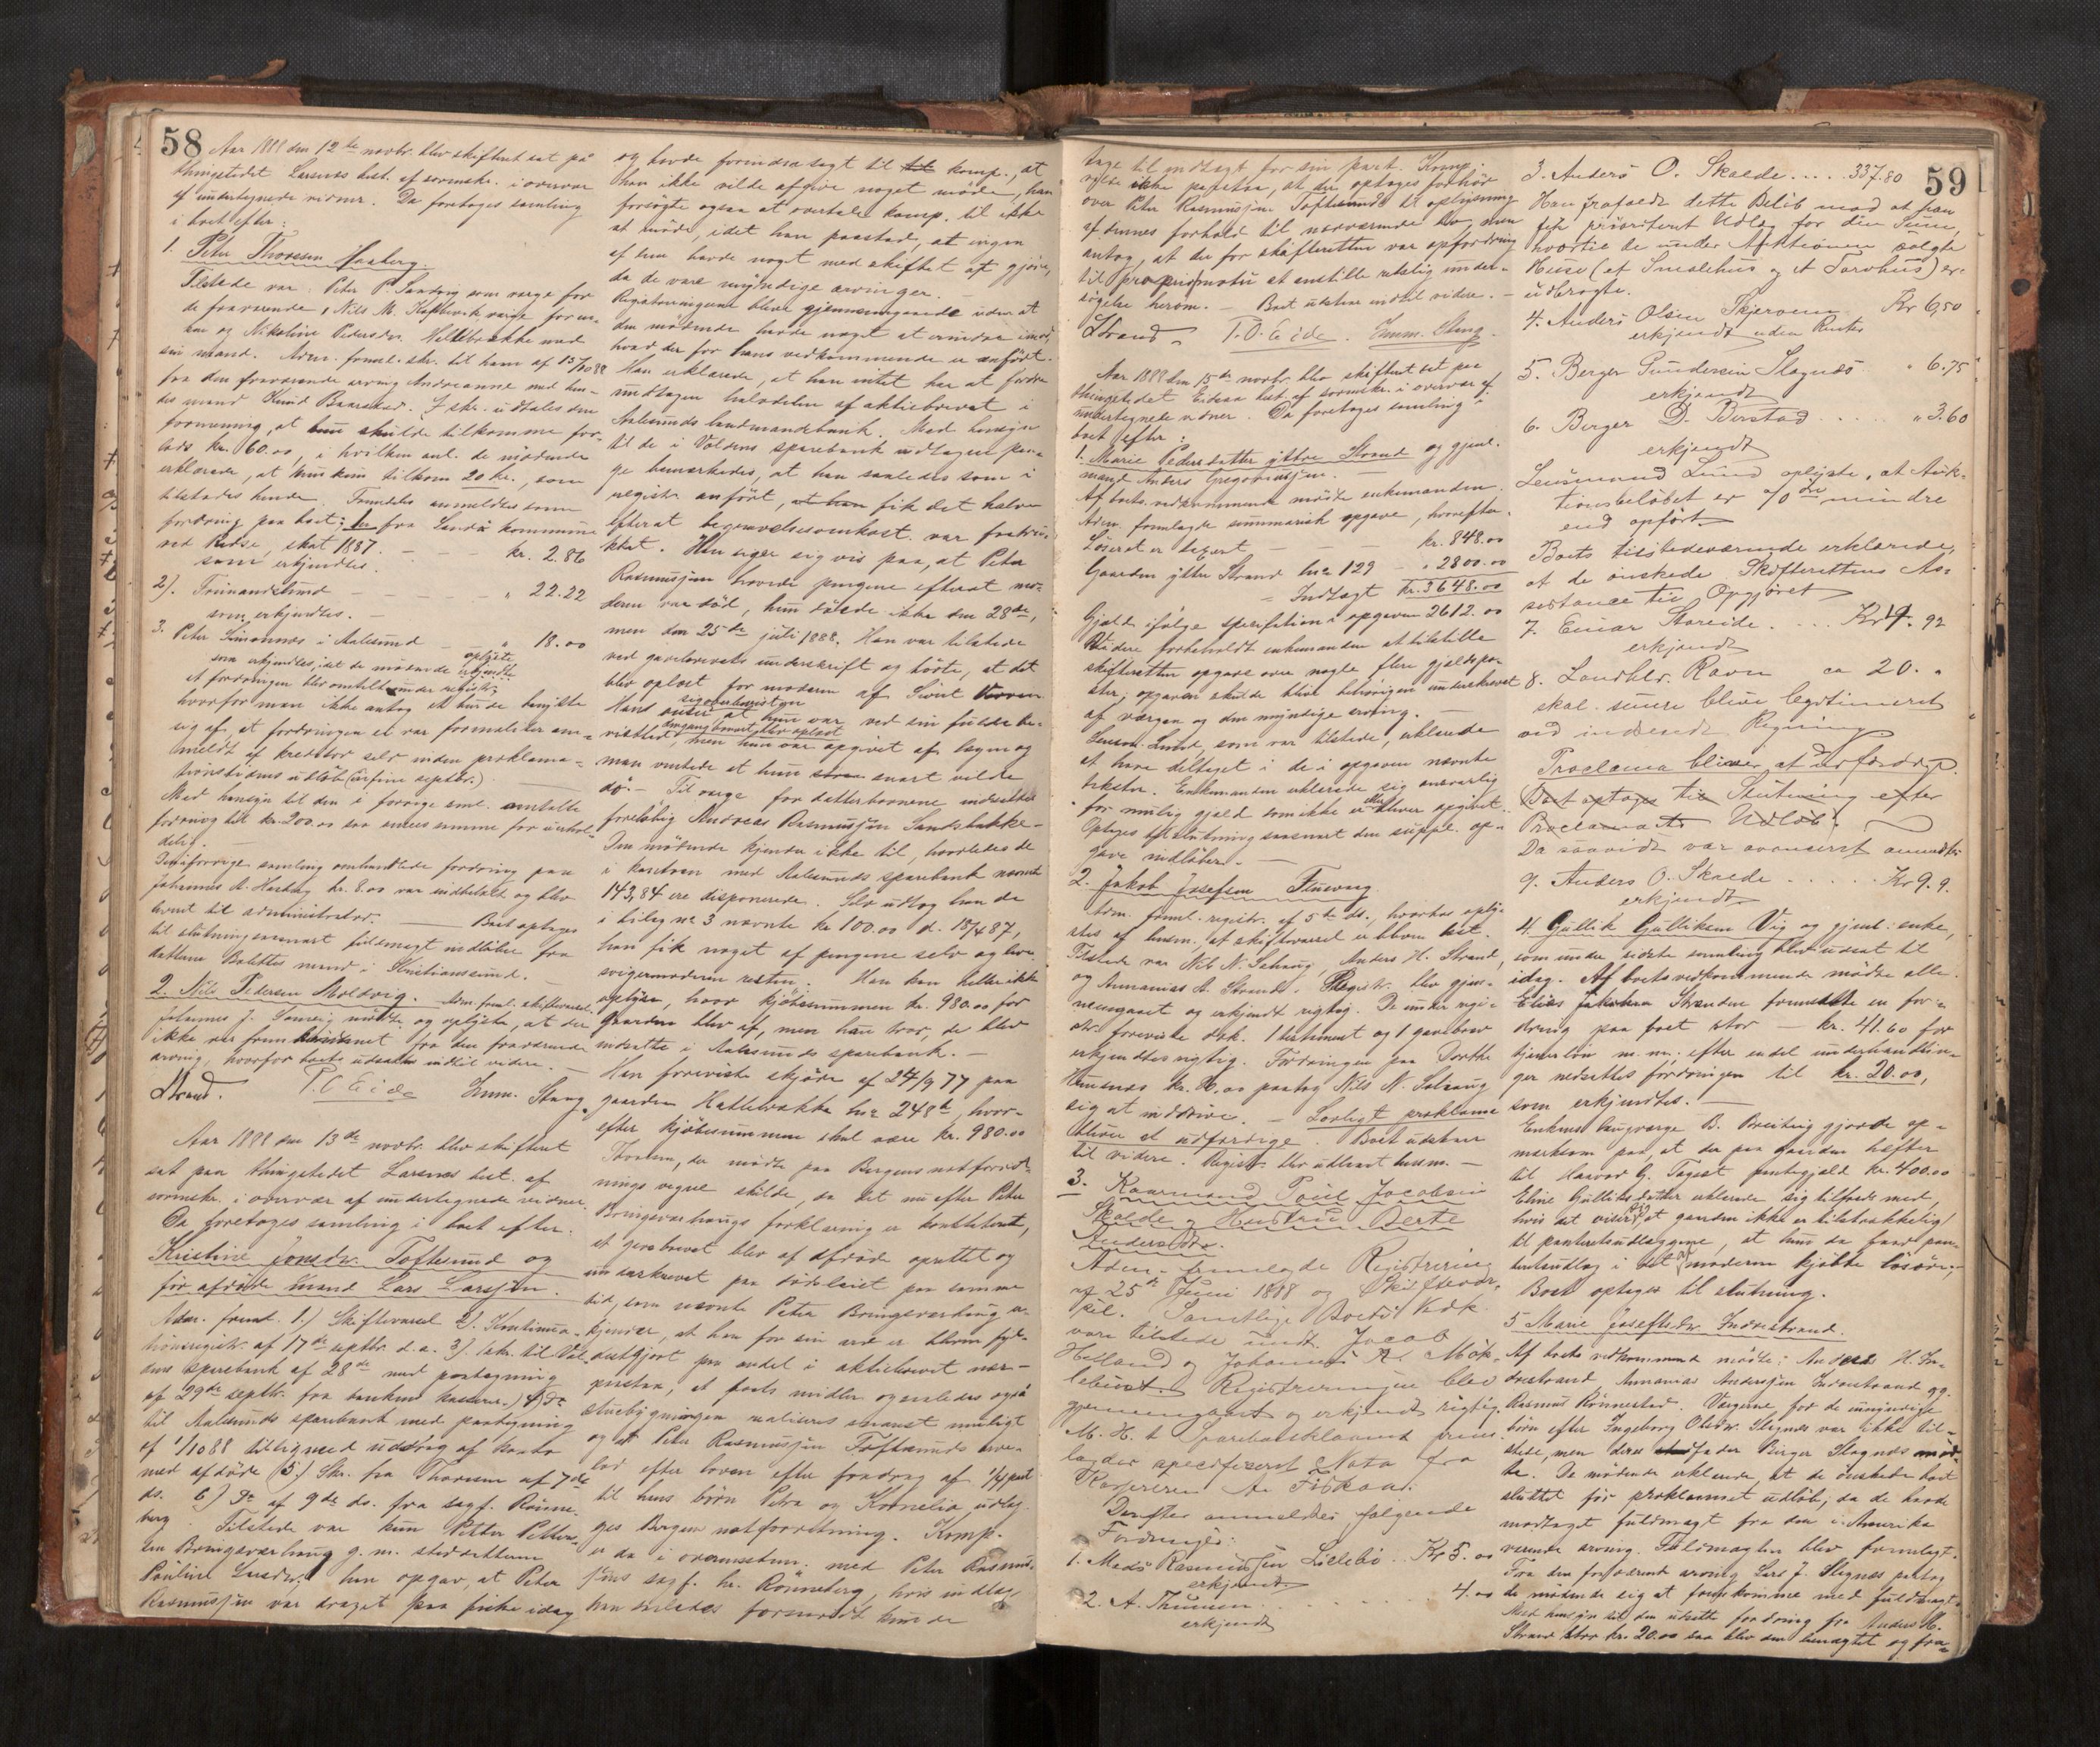 58
Aar 1888 den 12te novbr. blev skifteret sat på
thingstedet Larsnæs best. af sorenskr. i overvær
af undertegnede vidner. Da foretoges samling
i boet efter:
1. Peter Thorssen
Tilstede var: Peter P. Sandvig som værge for
de fraværende, Nils M. værge for en-
ken og Nikoline Pedersdtr. Hellebrække med
sin mand. Adm. freml. skr. til ham af 15/10 88
fra den fraværende arving Andreanne med hen-
des mand Knud I skr. udtales den
formening, at hun skulde tilkomme for-
lods kr. 60.00, i hvilken anl. de mødende
erklærede, at hun kun tilkom 20 kr., som
tilstodes hende. Fremdeles anmeldtes som
fordring paa boet: 1. fra Sande kommune
ved skat 1887. kr. 2.86
som erkjendtes.
2). " 22.22
som erkjendtes.
3. Peter i Aalesund " 18.00
som erkjendtes, idet de mødende oplyste
at fordringen blev omtalt under registr.
hvorfor man ikke antog at burde benytte
sig af, at fordringen ei var formaliter an-
meldt af kreditor selv inden proklama-
tionstidens udløb (in fine septbr.)
Med hensyn til den i forrige saml. omtalte
fordring stl. kr. 200.00 saa ansees samme for uerhol-
delig.
Den i forrige samling omhandlede fordring paa
Johannes A. kr. 8.00 var indbetalt og blev
leveret til administrator. Boet optages
til slutning saasnart fuldmagt indløber fra
datteren mand i Kristianssund.
2. Nils Pedersen Moldvig. Adm. freml. skiftevarsel.
Johannes J. mødte og oplyste, at der
ikke var fremkommet fra den fraværende
arving, hvorfor boet udsattes indtil videre.
Strand. P. O. Eide Imm. Stang.
Aar 1888 den 13de novbr. blev skifteret
sat paa thingstedet Larsnæs best. af
sorenskr. i overvær af undertegnede vidner.
Da foretoges samling i boet efter.
Kristine Jonsdtr. Toftesund og
før afdøde mand Lars Larssen.
Adm. freml. 1.) Skiftevarsel 2). Kontinua-
tionsregistr. af 17de septbr. d. a. 3). skr. til Vol-
dens sparebank af 28de med paategning
af 29de septbr. fra bankens kasserer. 4) Do
til Aalesunds sparebank med paategning
af 1/10 88 tilligemed uddrag af konto
med afdøde (5.) Skr. fra Thoresen af 7de
ds. 6) Do af 9de ds. fra sagf. Rønne-
berg. Tilstede var kun Petter Petter-
sen Bringsværhaug g. m. steddatteren
Pauline Larsdtr.; han opgav, at Peter
Rasmussen var draget paa fiske idag
og havde forinden sagt til komp., at
han ikke vilde afgive noget møde, han
forsøgte ogsaa at overtale komp. til ikke
at møde, idet han paastod, at ingen
af dem havde noget med skiftet at gjøre,
da de vare myndige arvinger.
Registreringerne bleve gjennemgaaede uden at
den mødende havde noget at erindre imod,
hvad der for hans vedkommende er anført.
Han erklærede, at han intet har at fordre
undtagen halvdelen af aktiebrevet i
Aalesunds landmandsbank. Med hensyn
til de i Voldens sparebank udtagne pen-
ge bemærkedes, at han saaledes som i
registr. anført, at han fik det halve
efterat begravelsesomkost. var fratruk-
ket. Han siger sig vis paa, at Peter
Rasmussen hævede pengene efterat mo-
deren var død, hun døde ikke den 28de,
men den 25de juli 1888. Han var tilstede
ved gavebrevets underskrift og hørte, at det
blev oplæst for moderen af Sivert
Hans at hun var ved sin fulde be-
vidsthed, men hun var opgivet af lægen og
man ventede at hun snart vilde
dø. – Til værge for datterbørnene indsattes
foreløbig Andreas Rasmussen Sandsbakke.
Den mødende kjender ikke til, hvorledes de
i kontoen med Aalesunds sparebank nævnte
143,84 ere disponerede. Selv udtog han de
i bilag no 3 nævnte kr. 100.00 d. 18/4 87,
han fik noget af pengene selv og hans
svigermoderen resten. Han kan heller ikke
oplyse, hvor kjøbesummen kr. 980.00 for
gaarden blev af, men han tror, de blev
indsatte i Aalesunds sparebank.
Han foreviste skjøde af 24/9 77 paa
gaarden Hattebrække lno 248b, hvor-
efter kjøbesummen skal være kr. 980.00
Thoresen, der mødte paa Bergens notforret-
nings vegne skilde, da det nu efter Peter
Bringsværhaugs forklaring er konstateret,
at gavebrevet blev af afdøde oprettet og
underskrevet paa dødsleiet paa samme
tid, som nævnte Peter Bringsværhaug er-
kjender, at han for sin arv er bleven fyl-
destgjort paa andel i aktiebrevet nær –
paastaa, at boets midler og saaledes ogsaa
stuebygningen realiseres snarest muligt
og at Peter Rasmussen Toftesunds arve-
lod efter loven efter fradrag af 1/4 part
til hans børn Petra og Kornelia udlæg-
ges Bergens notforretning. Komp.
er da i overensstem. med Peter Rasmus-
sens sagf. hr. Rønneberg, hvis indlæg
han saaledes formodet kunde
59
tage til indtægt for sin part. Komp.
vilde ikke paastaa, at der optages forhør
over Peter Rasmussen Toftesund til oplysning
af dennes forhold til nærværende bo, men
antog, at der for skifteretten var opfordring
til proprio motu at anstille retslig under-
søgelse herom. – Boet udstaar indtil videre. –
Strand P. O. Eide. Imm. Stang.
Aar 1888 den 15de novbr. blev skifteret sat paa
thingstedet Eidsaa best. af sorenskr. i overvær af
undertegnede vidner. Da foretoges samling i
boet efter:
1. Marie Pedersdatter yttre Strand og gjenl.
mand Anders Gregoriussen.
Af boets vedkommende mødte enkemanden.
Adm. fremlagde summarisk opgave, hvorefter
Løsøret er taxeret kr. 848.00
Gaarden ytre Strand lno 129 " 2800.00
Indtægt kr. 3648.00
Gjæld ifølge specifikation i opgaven 2612.00
Videre forbeholdt enkemanden at tilstille
skifteretten opgave over nogle flere gjældspo-
ster; opgaven skulde blive behørigen underskrevet
af værgen og den myndige arving.
Lensm. Lund, som var tilstede, erklærede
at have deltaget i de i opgaven nævnte
takster. Enkemanden erklærede sig ansvarlig
for mulig gjæld som ikke er eller bliver opgivet.
Optages til slutning saasnart den suppl. op-
gave indløber.
2. Jakob Josefsen
Adm. freml. registr. af 5te ds., hvorhos oply-
stes af lensm. at skiftevarsel er bleven
Tilstede var Nils N. Anders H. Strand,
og Annanias A. Strand. Registr. blev gjen-
nemgaaet og erkjendt rigtig. De under regi-
str. foreviste dok. 1 testament og 1 gavebrev
erkjendtes rigtig. Fordringen paa Dorthe
kr. paatog Nils N.
sig at inddrive. – Lovligt proklama
bliver at udfærdige. Boet udstaar
til videre. Registr. blev udlaant lensm. –
3. Kaarmand Poul Jacobsen
Skolde og Hustru Berte
Andersdtr.
Adm. fremlagde Registrering
af 25de Juni 1888 og Skiftevar-
sel. Samtlige Boets Vedk.
vare tilstede undt. Jacob
Helland og Johannes A.
Registreringen blev
gjennemgaaet og erkjendt rigtig.
M. H. t. frem-
lagdes specificeret Nota fra
Kassereren A. Fiskaa.
Derefter anmeldtes følgende
Fordringer:
1. Mads Rasmussen Lillebø. Kr 5.00
erkjendt
2. A. Thunem 4.00
erkjendt
3. Anders O. Skolde 337.80
Han frafaldt dette Beløb mod at han
fik prioriteret Udlæg for den Sum,
hvortil de under Auktionen solgte
Huse (et Smalehus og et Torvhus) er
udbragte.
4. Anders Olsen Skjerven Kr 6,50
erkjendt uden Renter
5. Berger Gundersen Slagnæs " 6.75
erkjendt
6. Berger D. Berstad " 3.60
erkjendt
Lensmand Lund oplyste, at Auk-
tionsbeløbet er 70 øre mindre
end opført.
Boets tilstedeværende erklærede,
at de ønskede Skifterettens As-
sistance til Opgjøret
7. Einar Storeide. Kr 9.92
erkjendt
8. Landhdl. Ravn ca 20. "
skal senere blive legitimeret
ved indsendt Regning.
Proclama bliver at udfærdige.
Boet optages til Slutning efter
Proclamaets Udløb.
Da saavidt var avanseret anmeldtes
9. Anders O. Skolde Kr 9.9.
erkjendt
4. Gullik Gulliksen Vig og gjenl. enke,
som under sidste samling blev udsat til
idag. Af boets vedkommende mødte alle.
Elias Jakobsen Stranden fremsatte en for-
dring paa boet stor – kr. 41.60 for
tjenerløn m. m.; efter endel underhandlin-
ger nedsattes fordringen til kr. 20.00,
som erkjendtes.
Enkens laugværge B. Breiteig gjorde op-
mærksom paa, at der paa gaarden hefter
til Haavar G. pantegjæld kr. 400.00
Eline Gulliksdatter erklærede sig tilfreds med,
hvis det viser sig, at gaarden ikke er tilstrækkelig
til panteretsudlæggene, at hun da faar pan-
teretsudlæg i det af moderen kjøbte løsøre;
Boet optages til slutning.
5 Marie Josefsdtr. Indrestrand.
Af boets vedkommende mødte: Anders H. In-
drestrand, Annanias Andersen Indrestrand og
Rasmus Rønnestad. Værgerne for de umyndige
børn efter Ingeborg Olsdtr. Slagnæs var ikke til-
stede, men deres fader Birger Slagnæs mød-
te. De mødende erklærede, at de ønskede boet
sluttet før proklamaets udløb; da de havde
modtaget fuldmagt fra den i Amerika
værende arving. Fuldmagten blev fremlagt.
Fra den fraværende arving Lars J. Slagnæs paatog
de mødende sig at fremkomme med fuldmagt.
Med hensyn til den udsatte fordring fra Anders H.
Strand stor kr. 20.00 saa blev den benægtet og fra-